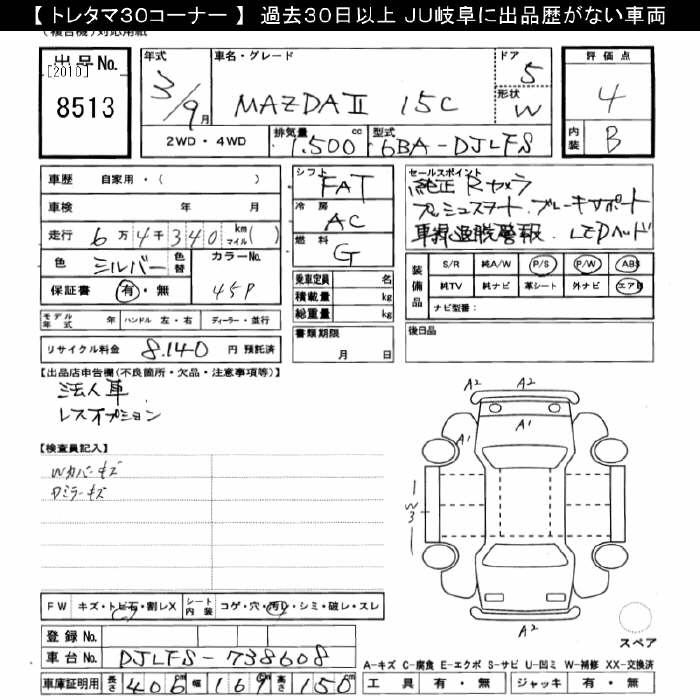 【 トレタマ30コーナー 】 過去30日以上 JU岐阜に出品歴がない車両
出品No.
[2010]
8513
年式
3/9月
車名・グレード
MAZDAⅡ 15C
ドア
5
形状
W
評価点
4
内装
B
2WD・4WD
排気量
1,500cc
型式
6BA-DJLFS
車歴 自家用・( )
車検 年 月
走行 6万4千340 kmマイル( )
色 シルバー
色替
カラーNo.
45P
保証書 有・無
シフト
FAT
冷房
AC
燃料
G
セールスポイント
純正 Rカメラ
プッシュスタート ブレーキサポート
車線逸脱警報 LEDヘッド
装備品
S/R 純A/W P/S P/W ABS
純TV 純ナビ 革シート 外ナビ エアB
ナビ型番:
乗車定員 名
積載量 kg
総重量 kg
モデル年式 年 ハンドル 左・右 ディーラー・並行
書類期限
月 日
後日品
リサイクル料金 8,140 円 預託済
【出品店申告欄(不良箇所・欠品・注意事項等)】
法人車
レスオプション
【検査員記入】
Wカバーキズ
Dミラーキズ
A2 A2
A1 A1
W3
A2
スペア
FW キズ・トビ石・割レX
シート内装 コゲ・穴・汚レ・シミ・破レ・スレ
登録No.
車台No. DJLFS-738608
車庫証明用 長さ 406cm 幅 169cm 高さ 150cm
A-キズ C-腐食 E-エクボ S-サビ U-凹ミ W-補修 XX-交換済
工具 有・無 ジャッキ 有・無